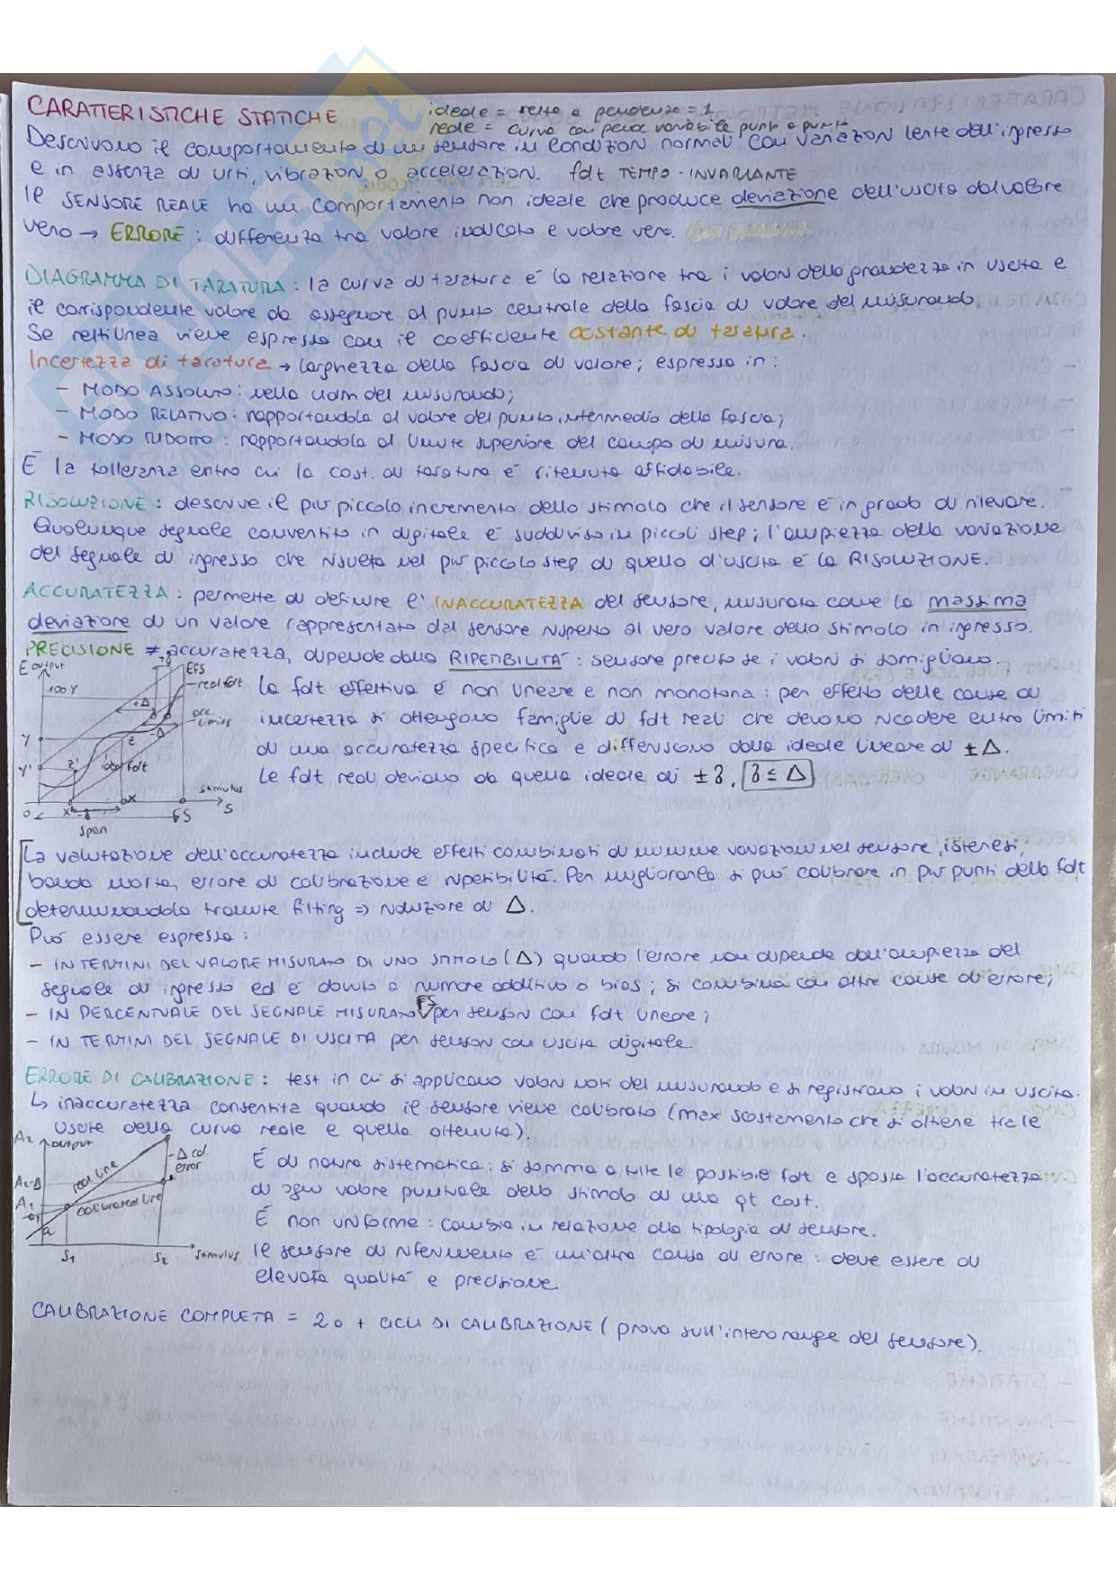 CARATTERISTICHE STATICHE
ideale = retta a pendenza = 1
reale = curva con pend. variabile punto a punto
Descrivono il comportamento di un sensore in condizioni normali con variazioni lente dell'ingresso
e in assenza di urti, vibrazioni o accelerazioni. fdt TEMPO-INVARIANTE
Il SENSORE REALE ha un comportamento non ideale che produce deviazione dell'uscita dal valore
vero → ERRORE: differenza tra valore indicato e valore vero.
DIAGRAMMA DI TARATURA: la curva di taratura è la relazione tra i valori della grandezza in uscita e
il corrispondente valore da assegnare al punto centrale della fascia di valore del misurando.
Se rettilinea viene espressa con il coefficiente costante di taratura.
Incertezza di taratura → larghezza della fascia di valore; espressa in:
- MODO ASSOLUTO: nella udm del misurando;
- MODO RELATIVO: rapportandola al valore del punto intermedio della fascia;
- MODO RIDOTTO: rapportandola al limite superiore del campo di misura.
È la tolleranza entro cui la cost. di taratura è ritenuta affidabile.
RISOLUZIONE: descrive il più piccolo incremento dello stimolo che il sensore è in grado di rilevare.
Qualunque segnale convertito in digitale è suddiviso in piccoli step; l'ampiezza della variazione
del segnale di ingresso che risulta nel più piccolo step di quello d'uscita è la RISOLUZIONE.
ACCURATEZZA: permette di definire l'INACCURATEZZA del sensore, misurata come la massima
deviazione di un valore rappresentato dal sensore rispetto al vero valore dello stimolo in ingresso.
PRECISIONE ≠ accuratezza, dipende dalla RIPETIBILITÀ: sensore preciso se i valori si somigliano.
E output
EFS
100Y
real fdt
+Δ
acc limits
Y
z
Δ
Y'
z'
id fdt
stimulus
0
x'
x
FS
S
span
La fdt effettiva è non lineare e non monotona: per effetto delle cause di
incertezza si ottengono famiglie di fdt reali che devono ricadere entro limiti
di una accuratezza specifica e differiscono dalla ideale lineare di ±Δ.
Le fdt reali deviano da quella ideale di ±δ, δ ≤ Δ
La valutazione dell'accuratezza include effetti combinati di minime variazioni nel sensore, isteresi,
banda morta, errore di calibrazione e ripetibilità. Per migliorarla si può calibrare in più punti della fdt
determinandola tramite fitting => riduzione di Δ.
Può essere espressa:
- IN TERMINI DEL VALORE MISURATO DI UNO STIMOLO (Δ) quando l'errore non dipende dall'ampiezza del
segnale di ingresso ed è dovuto a rumore additivo o bias; si combina con altre cause di errore;
- IN PERCENTUALE DEL SEGNALE MISURATO FS per sensori con fdt lineare;
- IN TERMINI DEL SEGNALE DI USCITA per sensori con uscita digitale.
ERRORE DI CALIBRAZIONE: test in cui si applicano valori noti del misurando e si registrano i valori in uscita.
↳ inaccuratezza consentita quando il sensore viene calibrato (max scostamento che si ottiene tra le
uscite della curva reale e quella ottenuta).
A2
output
real line
Δ cal. error
A2-Δ
A1
calibrated line
a
S1
S2
stimulus
È di natura sistematica: si somma a tutte le possibili fdt e sposta l'accuratezza
di ogni valore puntuale dello stimolo di una qt cost.
È non uniforme: cambia in relazione alla tipologia di sensore.
Il sensore di riferimento è un'altra causa di errore: deve essere di
elevata qualità e precisione.
CALIBRAZIONE COMPLETA = 2 o + CICLI DI CALIBRAZIONE (prova sull'intero range del sensore).